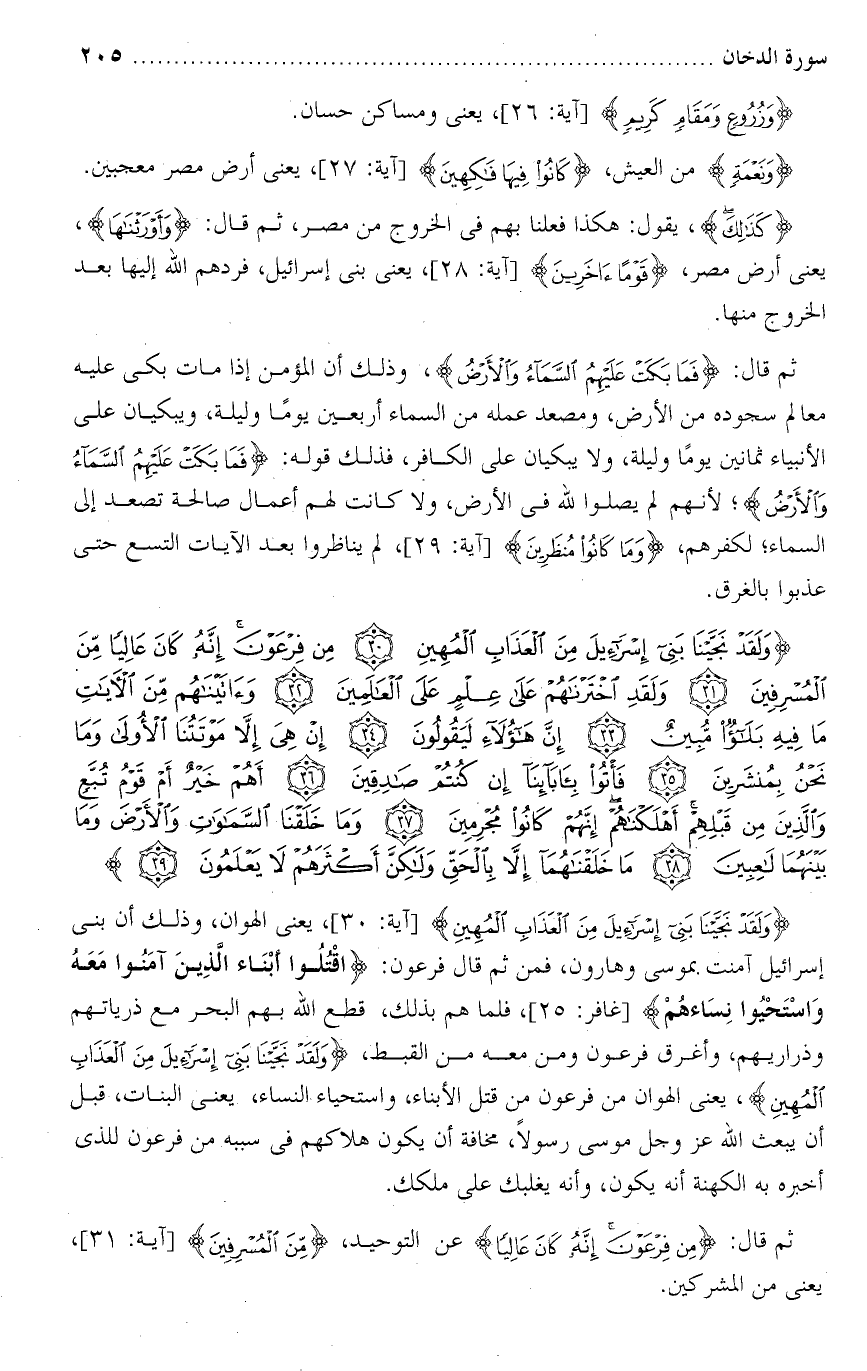 سورة الدخان ........................................................................ ٢٠٥
﴿وَزُرُوعٍ وَمَقَامٍ كَرِيمٍ﴾ [آية: ٢٦]، يعنى ومساكن حسان.
﴿وَنَعْمَةٍ﴾ من العيش، ﴿كَانُوا۟ فِيهَا فَٰكِهِينَ﴾ [آية: ٢٧]، يعنى أرض مصر معجبين.
﴿كَذَٰلِكَ ۖ﴾، يقول: هكذا فعلنا بهم فى الخروج من مصر، ثم قال: ﴿وَأَوْرَثْنَٰهَا﴾،
يعنى أرض مصر، ﴿قَوْمًا ءَاخَرِينَ﴾ [آية: ٢٨]، يعنى بنى إسرائيل، فردهم الله إليها بعد
الخروج منها.
ثم قال: ﴿فَمَا بَكَتْ عَلَيْهِمُ ٱلسَّمَآءُ وَٱلْأَرْضُ﴾، وذلك أن المؤمن إذا مات بكى عليه
معالم سجوده من الأرض، ومصعد عمله من السماء أربعين يومًا وليلة، ويبكيان على
الأنبياء ثمانين يومًا وليلة، ولا يبكيان على الكافر، فذلك قوله: ﴿فَمَا بَكَتْ عَلَيْهِمُ ٱلسَّمَآءُ
وَٱلْأَرْضُ﴾؛ لأنهم لم يصلوا لله فى الأرض، ولا كانت لهم أعمال صالحة تصعد إلى
السماء؛ لكفرهم، ﴿وَمَا كَانُوا۟ مُنظَرِينَ﴾ [آية: ٢٩]، لم يناظروا بعد الآيات التسع حتى
عذبوا بالغرق.
﴿وَلَقَدْ نَجَّيْنَا بَنِىٓ إِسْرَٰٓءِيلَ مِنَ ٱلْعَذَابِ ٱلْمُهِينِ ٣٠ مِن فِرْعَوْنَ ۚ إِنَّهُۥ كَانَ عَالِيًا مِّنَ
ٱلْمُسْرِفِينَ ٣١ وَلَقَدِ ٱخْتَرْنَٰهُمْ عَلَىٰ عِلْمٍ عَلَى ٱلْعَٰلَمِينَ ٣٢ وَءَاتَيْنَٰهُم مِّنَ ٱلْءَايَٰتِ
مَا فِيهِ بَلَٰٓؤٌا۟ مُّبِينٌ ٣٣ إِنَّ هَٰٓؤُلَآءِ لَيَقُولُونَ ٣٤ إِنْ هِىَ إِلَّا مَوْتَتُنَا ٱلْأُولَىٰ وَمَا
نَحْنُ بِمُنشَرِينَ ٣٥ فَأْتُوا۟ بِـَٔابَآئِنَآ إِن كُنتُمْ صَٰدِقِينَ ٣٦ أَهُمْ خَيْرٌ أَمْ قَوْمُ تُبَّعٍ
وَٱلَّذِينَ مِن قَبْلِهِمْ ۚ أَهْلَكْنَٰهُمْ ۖ إِنَّهُمْ كَانُوا۟ مُجْرِمِينَ ٣٧ وَمَا خَلَقْنَا ٱلسَّمَٰوَٰتِ وَٱلْأَرْضَ وَمَا
بَيْنَهُمَا لَٰعِبِينَ ٣٨ مَا خَلَقْنَٰهُمَآ إِلَّا بِٱلْحَقِّ وَلَٰكِنَّ أَكْثَرَهُمْ لَا يَعْلَمُونَ ٣٩﴾
﴿وَلَقَدْ نَجَّيْنَا بَنِىٓ إِسْرَٰٓءِيلَ مِنَ ٱلْعَذَابِ ٱلْمُهِينِ﴾ [آية: ٣٠]، يعنى الهوان، وذلك أن بنى
إسرائيل آمنت بموسى وهارون، فمن ثم قال فرعون: ﴿اقْتُلُوا أَبْنَاء الَّذِينَ آمَنُوا مَعَهُ
وَاسْتَحْيُوا نِسَاءهُمْ﴾ [غافر: ٢٥]، فلما هم بذلك، قطع الله بهم البحر مع ذرياتهم
وذراريهم، وأغرق فرعون ومن معه من القبط، ﴿وَلَقَدْ نَجَّيْنَا بَنِىٓ إِسْرَٰٓءِيلَ مِنَ ٱلْعَذَابِ
ٱلْمُهِينِ﴾، يعنى الهوان من فرعون من قتل الأبناء، واستحياء النساء، يعنى البنات، قبل
أن يبعث الله عز وجل موسى رسولاً، مخافة أن يكون هلاكهم فى سببه من فرعون للذى
أخبره به الكهنة أنه يكون، وأنه يغلبك على ملكك.
ثم قال: ﴿مِن فِرْعَوْنَ ۚ إِنَّهُۥ كَانَ عَالِيًا﴾ عن التوحيد، ﴿مِّنَ ٱلْمُسْرِفِينَ﴾ [آية: ٣١]،
يعنى من المشركين.